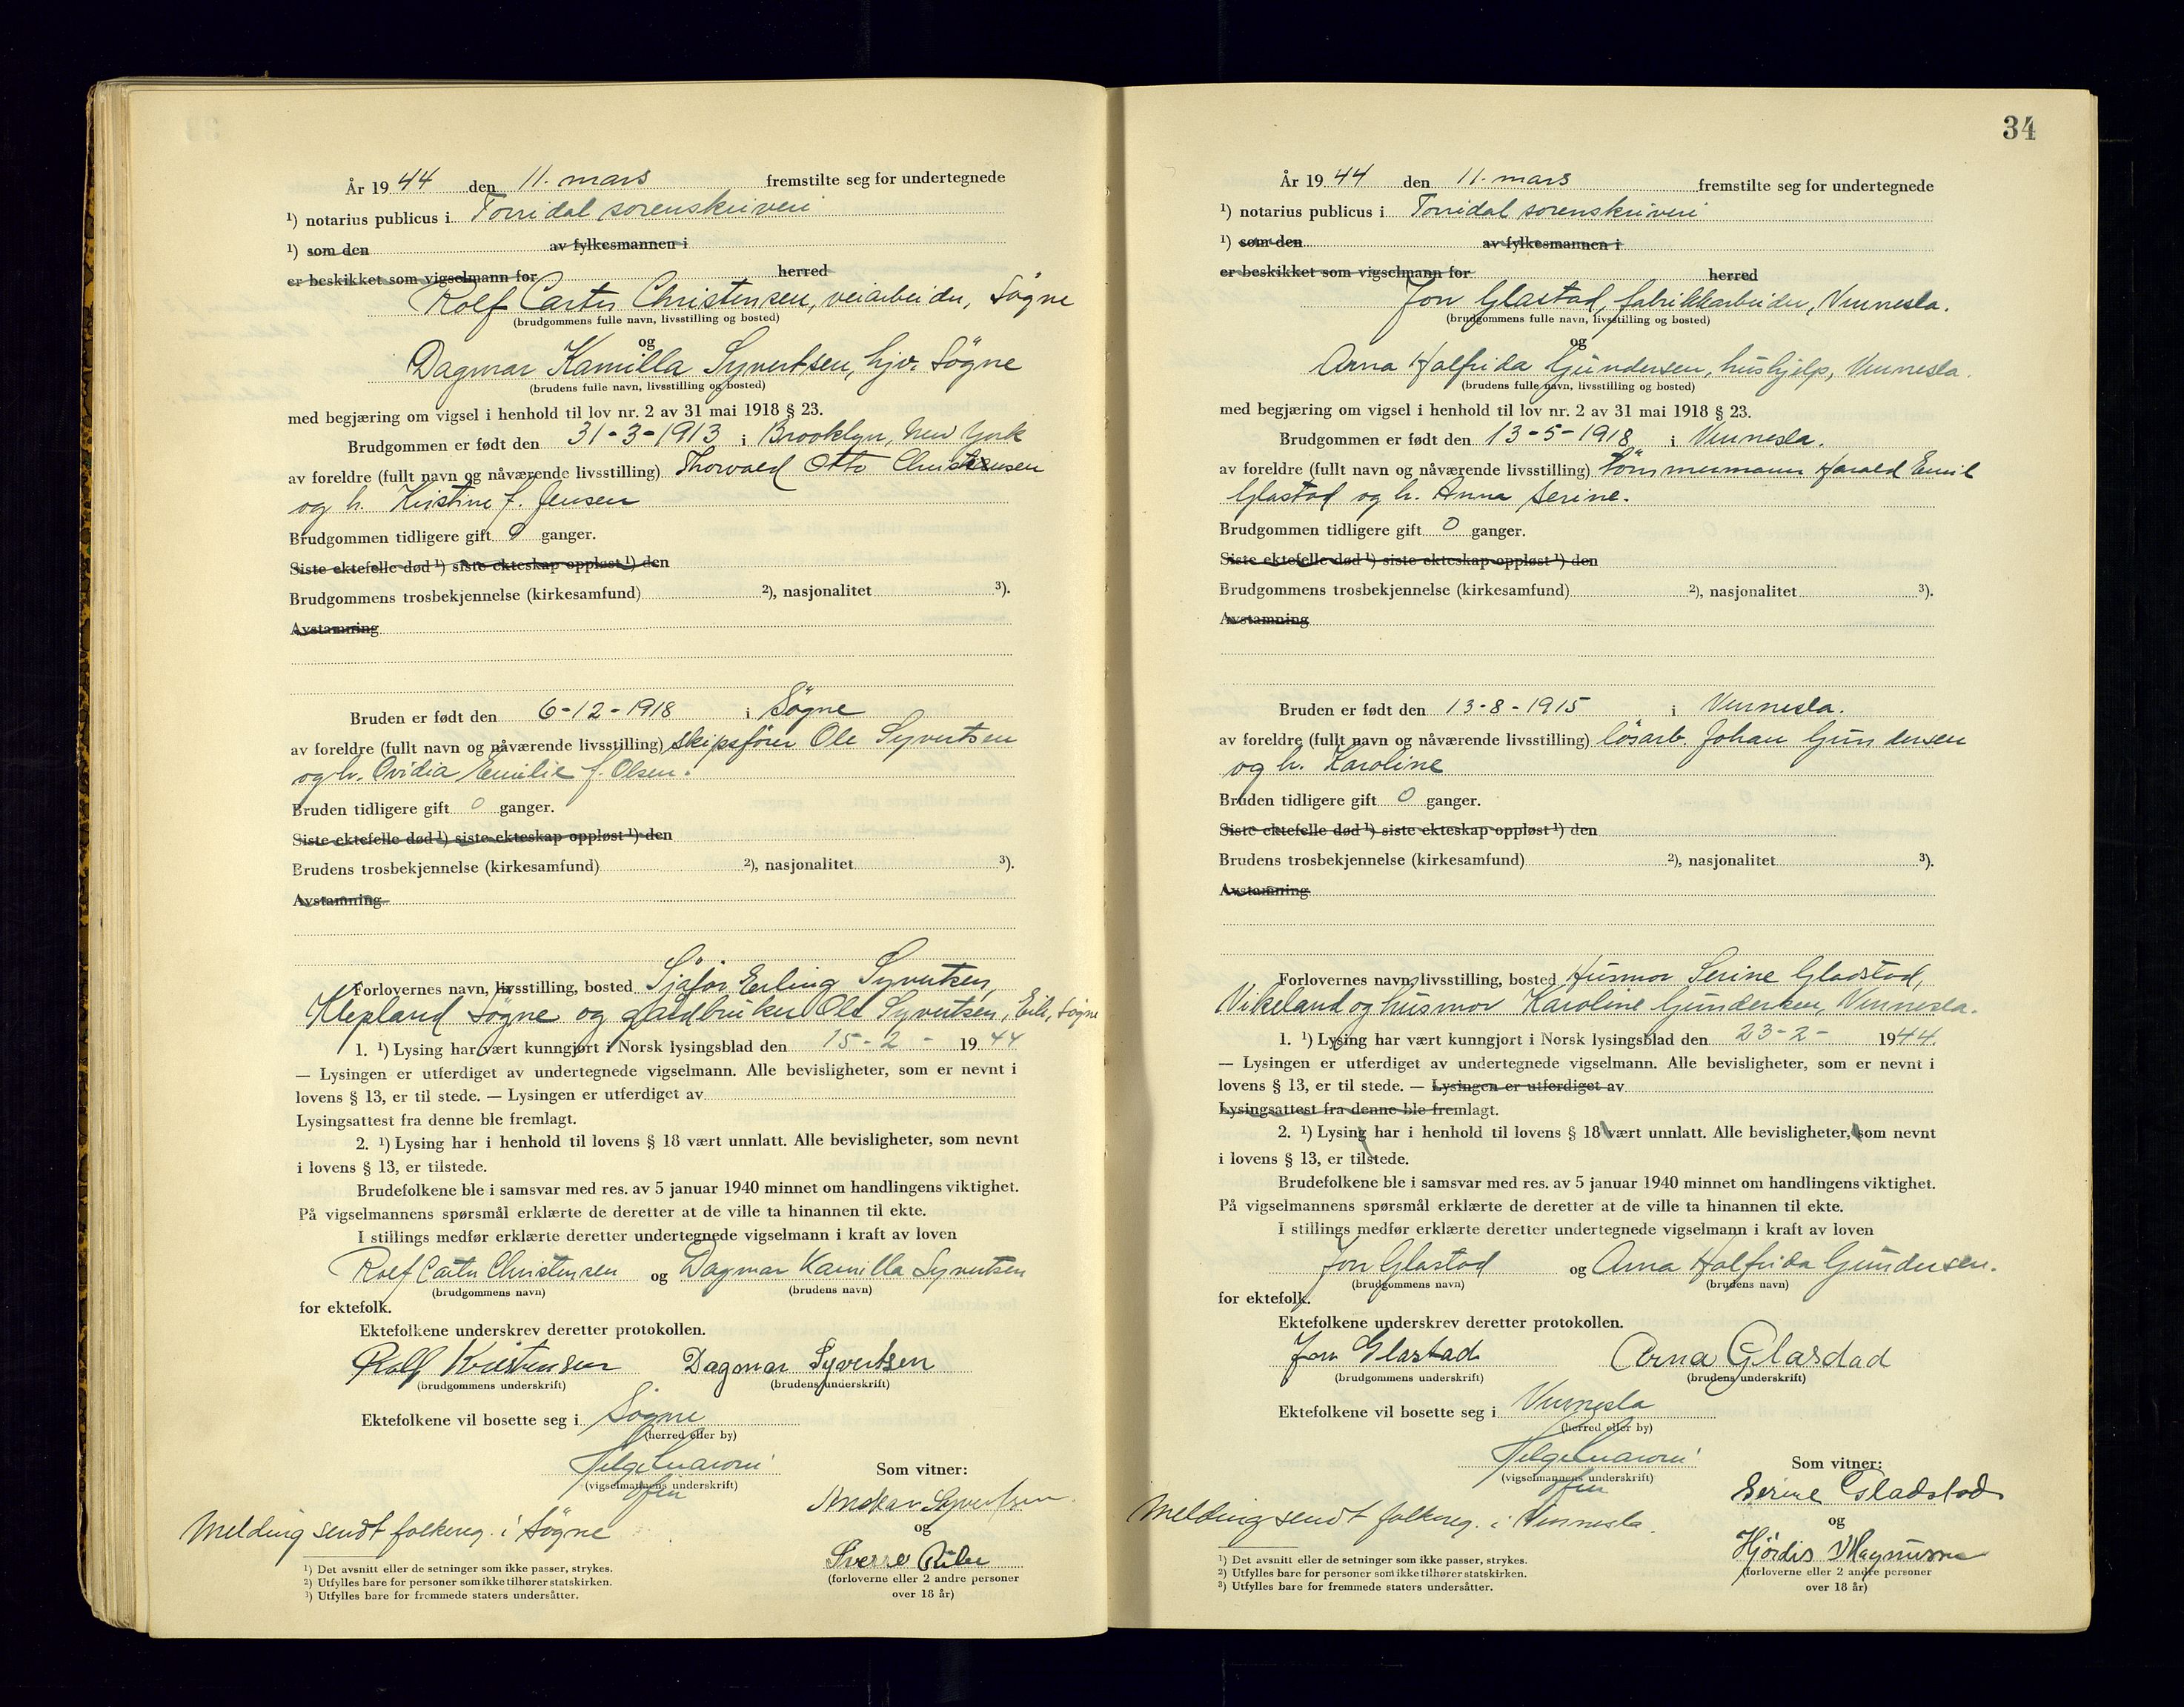 År 19 44 den 11. mars fremstilte seg for undertegnede
¹) notarius publicus i Torridal sorenskriveri
¹) som den av fylkesmannen i
er beskikket som vigselmann for herred
Rolf Carter Christensen, veiarbeider, Søgne
(brudgommens fulle navn, livsstilling og bosted)
og
Dagmar Kamilla Syvertsen, hjv. Søgne
(brudens fulle navn, livsstilling og bosted)
med begjæring om vigsel i henhold til lov nr. 2 av 31 mai 1918 § 23.
Brudgommen er født den 31-3-1913 i Brooklyn, New York
av foreldre (fullt navn og nåværende livsstilling) Thorvald Otto Christensen
og h. Kristine f. Jensen
Brudgommen tidligere gift 0 ganger.
Siste ektefelle død ¹) siste ekteskap oppløst ¹) den
Brudgommens trosbekjennelse (kirkesamfund) ²), nasjonalitet ³).
Avstamning
Bruden er født den 6-12-1918 i Søgne
av foreldre (fullt navn og nåværende livsstilling) skipsfører Ole Syvertsen
og h. Ovidia Emilie f. Olsen.
Bruden tidligere gift 0 ganger.
Siste ektefelle død ¹) siste ekteskap oppløst ¹) den
Brudens trosbekjennelse (kirkesamfund) ²), nasjonalitet ³).
Avstamning
Forlovernes navn, livsstilling, bosted Sjåfør Erling Syvertsen,
Klepland Søgne og gårdbruker Ole Syvertsen, Eik, Søgne
1. ¹) Lysing har vært kunngjort i Norsk lysingsblad den 15-2- 19 44
— Lysingen er utferdiget av undertegnede vigselmann. Alle bevisligheter, som er nevnt i
lovens § 13, er til stede. — Lysingen er utferdiget av
Lysingsattest fra denne ble fremlagt.
2. ¹) Lysing har i henhold til lovens § 18 vært unnlatt. Alle bevisligheter, som nevnt
i lovens § 13, er tilstede.
Brudefolkene ble i samsvar med res. av 5 januar 1940 minnet om handlingens viktighet.
På vigselmannens spørsmål erklærte de deretter at de ville ta hinannen til ekte.
I stillings medfør erklærte deretter undertegnede vigselmann i kraft av loven
Rolf Carter Christensen og Dagmar Kamilla Syvertsen
(brudgommens navn) (brudens navn)
for ektefolk.
Ektefolkene underskrev deretter protokollen.
Rolf Kristensen Dagmar Syvertsen
(brudgommens underskrift) (brudens underskrift)
Ektefolkene vil bosette seg i Søgne
(herred eller by)
Som vitner:
(vigselmannens underskrift)
Syvertsen
og
Melding sendt folkereg. i Søgne
Sverre
(forloverne eller 2 andre personer
over 18 år)
¹) Det avsnitt eller de setninger som ikke passer, strykes.
²) Utfylles bare for personer som ikke tilhører statskirken.
³) Utfylles bare for fremmede staters undersåtter.
34
År 19 44 den 11. mars fremstilte seg for undertegnede
¹) notarius publicus i Torridal sorenskriveri
¹) som den av fylkesmannen i
er beskikket som vigselmann for herred
Jon Glastad, fabrikkarbeider, Vennesla.
(brudgommens fulle navn, livsstilling og bosted)
og
Arna Halfrida Gundersen, hushjelp, Vennesla.
(brudens fulle navn, livsstilling og bosted)
med begjæring om vigsel i henhold til lov nr. 2 av 31 mai 1918 § 23.
Brudgommen er født den 13-5-1918 i Vennesla.
av foreldre (fullt navn og nåværende livsstilling) tömmermann Harald Emil
Glastad og h. Anna Serine.
Brudgommen tidligere gift 0 ganger.
Siste ektefelle død ¹) siste ekteskap oppløst ¹) den
Brudgommens trosbekjennelse (kirkesamfund) ²), nasjonalitet ³).
Avstamning
Bruden er født den 13-8-1915 i Vennesla.
av foreldre (fullt navn og nåværende livsstilling) lösarb. Johan Gundersen
og h. Karoline
Bruden tidligere gift 0 ganger.
Siste ektefelle død ¹) siste ekteskap oppløst ¹) den
Brudens trosbekjennelse (kirkesamfund) ²), nasjonalitet ³).
Avstamning
Forlovernes navn, livsstilling, bosted Husmor Serine Gladstad,
Vikeland og husmor Karoline Gundersen, Vennesla.
1. ¹) Lysing har vært kunngjort i Norsk lysingsblad den 23-2- 1944.
— Lysingen er utferdiget av undertegnede vigselmann. Alle bevisligheter, som er nevnt i
lovens § 13, er til stede. — Lysingen er utferdiget av
Lysingsattest fra denne ble fremlagt.
2. ¹) Lysing har i henhold til lovens § 18 vært unnlatt. Alle bevisligheter, som nevnt
i lovens § 13, er tilstede.
Brudefolkene ble i samsvar med res. av 5 januar 1940 minnet om handlingens viktighet.
På vigselmannens spørsmål erklærte de deretter at de ville ta hinannen til ekte.
I stillings medfør erklærte deretter undertegnede vigselmann i kraft av loven
Jon Glastad og Arna Halfrida Gundersen.
(brudgommens navn) (brudens navn)
for ektefolk.
Ektefolkene underskrev deretter protokollen.
Jon Glastad Arna Glasdad
(brudgommens underskrift) (brudens underskrift)
Ektefolkene vil bosette seg i Vennesla
(herred eller by)
Som vitner:
(vigselmannens underskrift)
Serine Gladstad
og
Melding sendt folkereg. i Vennesla.
Hjördis Magnussen
(forloverne eller 2 andre personer
over 18 år)
¹) Det avsnitt eller de setninger som ikke passer, strykes.
²) Utfylles bare for personer som ikke tilhører statskirken.
³) Utfylles bare for fremmede staters undersåtter.